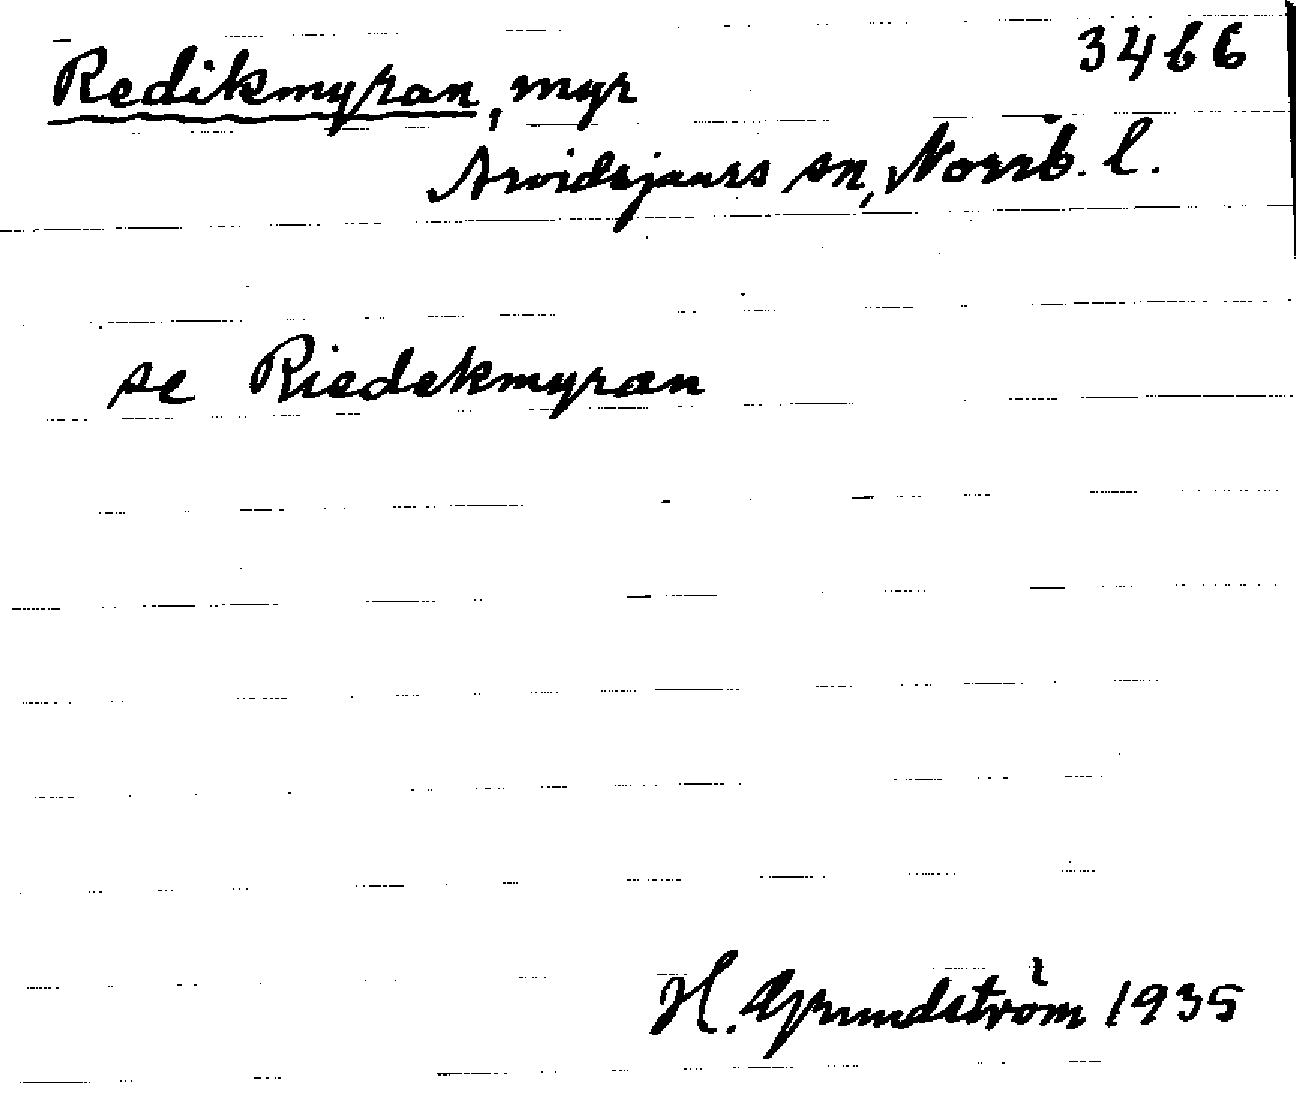 3466
Redikmyran, myr
Arvidsjaurs sn, Norrb. l.
se Riedekmyran
H. Grundström 1935